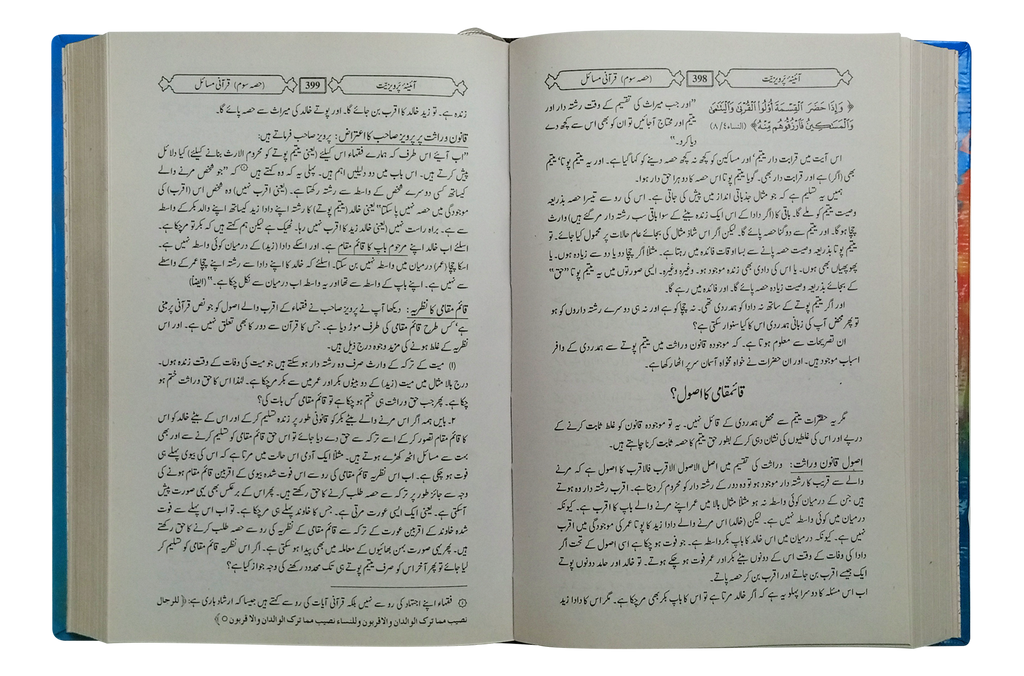 آئینۂ پرویزیت 398 (حصہ سوم) قرآنی مسائل
﴿ وَإِذَا حَضَرَ الْقِسْمَةَ أُوْلُوا الْقُرْبَىٰ وَالْيَتَٰمَىٰ
وَالْمَسَٰكِينُ فَارْزُقُوهُم مِّنْهُ﴾ (النساء٤/ ٨)
"اور جب میراث کی تقسیم کے وقت رشتہ دار اور
یتیم اور محتاج آجائیں تو ان کو بھی اس سے کچھ دے
دیا کرو۔"
اس آیت میں قرابت دار یتیم' اور مساکین کو کچھ نہ کچھ حصہ دینے کو کہا گیا ہے۔ اور یہ یتیم پوتا' یتیم
بھی (اگر) ہے اور قرابت دار بھی۔ گویا یتیم پوتا اس حصہ کا دوہرا حق دار ہوا۔
ہمیں یہ تسلیم ہے کہ جو مثال جذباتی انداز میں پیش کی جاتی ہے۔ اس کی رو سے تیسرا حصہ بذریعہ
وصیت یتیم کو ملے گا۔ باقی کا (اگر دادا کے اس ایک زندہ بیٹے کے سوا باقی سب رشتہ دار مر گئے ہیں) وارث
چچا ہو گا۔ اور یتیم سے دو گنا حصہ پائے گا۔ لیکن اگر اس شاذ مثال کی بجائے عام حالات پر محمول کیا جائے۔ تو
یتیم پوتا بذریعہ وصیت حصہ پانے سے بسا اوقات فائدہ میں رہتا ہے۔ مثلاً اگر چچا دو یا دو سے زیادہ ہوں۔ یا
پھوپھیاں بھی ہوں۔ یا اس کی دادی بھی زندہ موجود ہو۔ وغیرہ وغیرہ۔ ایسی صورتوں میں یہ یتیم پوتا "حق"
کے بجائے بذریعہ وصیت زیادہ حصہ پائے گا۔ اور فائدہ میں رہے گا۔
اور اگر یتیم پوتے کے ساتھ نہ دادا کو ہمدردی تھی۔ نہ چچا کو ہے اور نہ ہی دوسرے رشتہ داروں کو ہو
تو پھر محض آپ کی زبانی ہمدردی اس کا کیا سنوار سکتی ہے؟
ان تصریحات سے معلوم ہوتا ہے۔ کہ موجودہ قانون وراثت میں یتیم پوتے سے ہمدردی کے وافر
اسباب موجود ہیں۔ اور ان حضرات نے خواہ مخواہ آسمان سر پر اٹھا رکھا ہے۔
قائمقامی کا اصول؟
مگر یہ حضرات یتیم سے محض ہمدردی کے قائل نہیں۔ یہ تو موجودہ قانون کو غلط ثابت کرنے کے
درپے اور اس کی غلطیوں کی نشان دہی کر کے بطور حق یتیم کا حصہ ثابت کرنا چاہتے ہیں۔
اصول قانون وراثت: وراثت کی تقسیم میں اصل الاصول الاقرب فالاقرب کا اصول ہے کہ مرنے
والے سے قریب کا رشتہ دار موجود ہو تو وہ دور کے رشتہ دار کو محروم کر دیتا ہے۔ اقرب رشتہ دار وہ ہوتے
ہیں جن کے درمیان کوئی واسطہ نہ ہو مثلاً مثال بالا میں عمر اپنے مرنے والے باپ کا اقرب ہے۔ کیونکہ
درمیان میں کوئی واسطہ نہیں ہے۔ لیکن (خالد) اس مرنے والے دادا زید کا پوتا عمر کی موجودگی میں اقرب
نہیں ہے۔ کیونکہ درمیان میں اس خالد کا باپ بکر واسطہ ہے۔ جو فوت ہو چکا ہے اسی اصول کے تحت اگر
دادا کی وفات کے وقت اس کے دونوں بیٹے بکر اور عمر فوت ہو چکے ہوتے۔ تو خالد اور حامد دونوں پوتے
ایک جیسے اقرب بن جاتے اور اقرب بن کر حصہ پاتے۔
اب اس مسئلہ کا دوسرا پہلو یہ ہے کہ اگر خالد مرتا ہے تو اس کا باپ بکر بھی مر چکا ہے۔ مگر اس کا دادا زید
آئینۂ پرویزیت 399 (حصہ سوم) قرآنی مسائل
زندہ ہے۔ تو زید خالد کا اقرب بن جائے گا۔ اور پوتے خالد کی میراث سے حصہ پائے گا۔
قانون وراثت پر پرویز صاحب کا اعتراض: پرویز صاحب فرماتے ہیں:
"اب آیئے اس طرف کہ ہمارے فقہاء اس کیلئے (یعنی یتیم پوتے کو محروم الارث بنانے کیلئے) کیا دلائل
پیش کرتے ہیں۔ اس باب میں دو دلیلیں اہم ہیں۔ پہلی یہ کہ وہ کہتے ہیں ① کہ "جو شخص مرنے والے
کیساتھ کسی دوسرے شخص کے واسطہ سے رشتہ رکھتا ہے۔ (یعنی اقرب نہیں) وہ شخص اس (اقرب) کی
موجودگی میں حصہ نہیں پا سکتا" یعنی خالد (یتیم پوتے) کا رشتہ اپنے دادا زید کیساتھ اپنے والد بکر کے واسطہ
سے ہے۔ براہ راست نہیں (یعنی خالد زید کا اقرب نہیں رہا۔ ٹھیک ہے لیکن ہم کہتے ہیں کہ بکر تو مر چکا ہے۔
اسلئے اب خالد اپنے مرحوم باپ کا قائم مقام ہے۔ اور اسکے دادا (زید) کے درمیان کوئی واسطہ نہیں ہے۔
اسکا چچا (عمر) درمیان میں واسطہ نہیں بن سکتا۔ اسلئے کہ خالد کا اپنے دادا سے رشتہ اپنے چچا عمر کے واسطے
سے نہیں ہے۔ اپنے باپ کے واسطہ سے تھا اور یہ واسطہ اب درمیان سے نکل چکا ہے۔" (ایضا)
قائم مقامی کا نظریہ: دیکھا آپ نے پرویز صاحب نے فقہاء کے اقرب والے اصول کو جو نص قرآنی پر مبنی
ہے' کس طرح قائم مقامی کی طرف موڑ دیا ہے۔ جس کا قرآن سے دور کا بھی تعلق نہیں ہے۔ اور اس
نظریہ کے غلط ہونے کی مزید وجوہ درج ذیل ہیں۔
(ا) میت کے ترکہ کے وارث صرف وہ رشتہ دار ہو سکتے ہیں جو میت کی وفات کے وقت زندہ ہوں۔
درج بالا مثال میں میت (زید) کے دو بیٹوں بکر اور عمر میں سے بکر مر چکا ہے۔ لہٰذا اس کا حق وراثت ختم ہو
چکا ہے۔ پھر جب حق وراثت ہی ختم ہو چکا ہے تو قائم مقامی کس بات کی؟
۲۔ بایں ہمہ اگر اس مرنے والے بیٹے بکر کو قانونی طور پر زندہ تسلیم کر کے اور اس کے بیٹے خالد کو اس
کا قائم مقام تصور کر کے اسے ترکہ سے حق دے دیا جائے تو اس حق قائم مقامی کو تسلیم کرنے سے اور بھی
بہت سے مسائل اٹھ کھڑے ہوتے ہیں۔ مثلاً ایک آدمی اس حالت میں مرتا ہے کہ اس کی بیوی پہلے ہی
فوت ہو چکی ہے۔ اب اس نظریہ قائم مقامی کی رو سے اس فوت شدہ بیوی کے اقربین قائم مقام ہونے کی
وجہ سے جائز طور پر ترکہ سے حصہ طلب کرنے کا حق رکھتے ہیں۔ پھر اس کے برعکس بھی یہی صورت پیش
آسکتی ہے۔ یعنی ایک ایسی عورت مرتی ہے۔ جس کا خاوند پہلے ہی مر چکا ہے۔ تو اب اس پہلے سے فوت
شدہ خاوند کے اقربین عورت کے ترکہ سے قائم مقامی کے نظریہ کی رو سے حصہ طلب کرنے کا حق رکھتے
ہیں۔ پھر یہی صورت بہن بھائیوں کے معاملہ میں بھی پیدا ہو سکتی ہے۔ اگر اس نظریہ قائم مقامی کو تسلیم کر
لیا جائے تو پھر آخر اس کو صرف یتیم پوتے ہی تک محدود رکھنے کی وجہ جواز کیا ہے؟
① فقہاء اپنے اجتہاد کی رو سے نہیں بلکہ قرآنی آیات کی رو سے کہتے ہیں جیسا کہ ارشاد باری ہے: ﴿ للرجال
نصیب مما ترک الوالدان والاقربون وللنساء نصیب مما ترک الوالدان والاقربون ○ ﴾